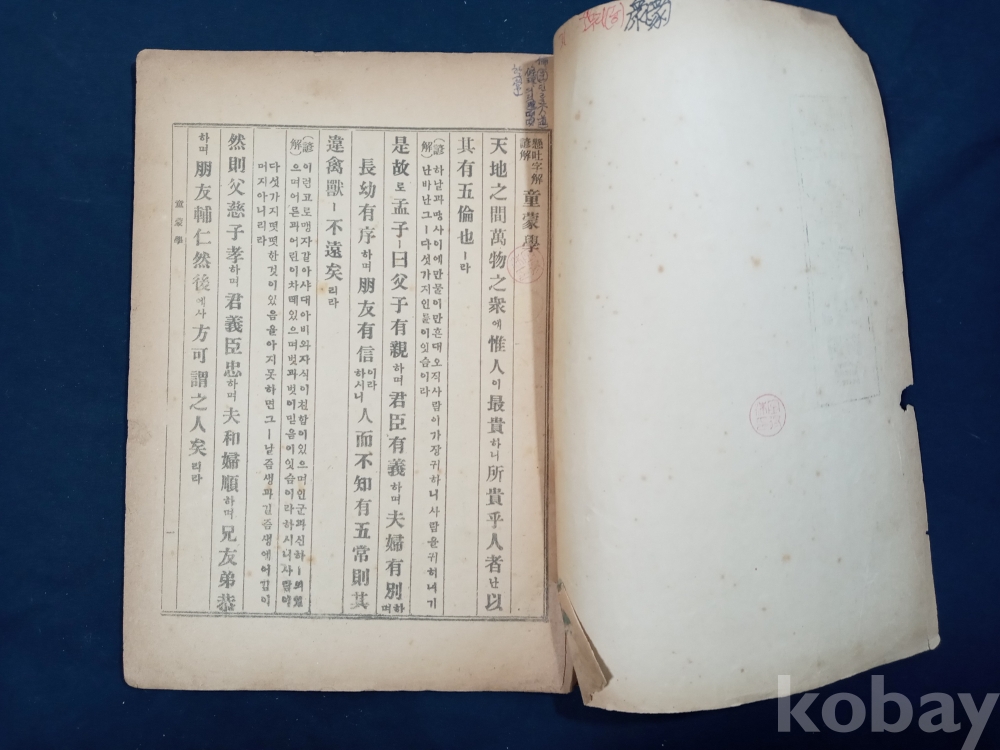 懸吐字解
諺解
童蒙學
天地之間萬物之衆에惟人이最貴하니所貴乎人者난以
其有五倫也ㅣ라
(諺解)하날과땅사이에만물이만흔대오직사람이가장귀하니사람을귀히녀기
난바난그ㅣ다섯가지인륜이잇슴이라
是故로孟子ㅣ曰父子有親하며君臣有義하며夫婦有別하며
長幼有序하며朋友有信이라하시니人而不知有五常則其
違禽獸ㅣ不遠矣리라
(諺解)이런고로맹자갈아샤대아비와자식이친함이있으며인군과신하ㅣ의
으며어른과어린이차례있으며벗과벗이믿음이잇슴이라하시니사람이
다섯가지떳떳한것이있음을아지못하면그ㅣ날즘생과길즘생에어김이
머지아니리라
然則父慈子孝하며君義臣忠하며夫和婦順하며兄友弟恭
하며朋友輔仁然後에사方可謂之人矣리라
童蒙學
一
kobay